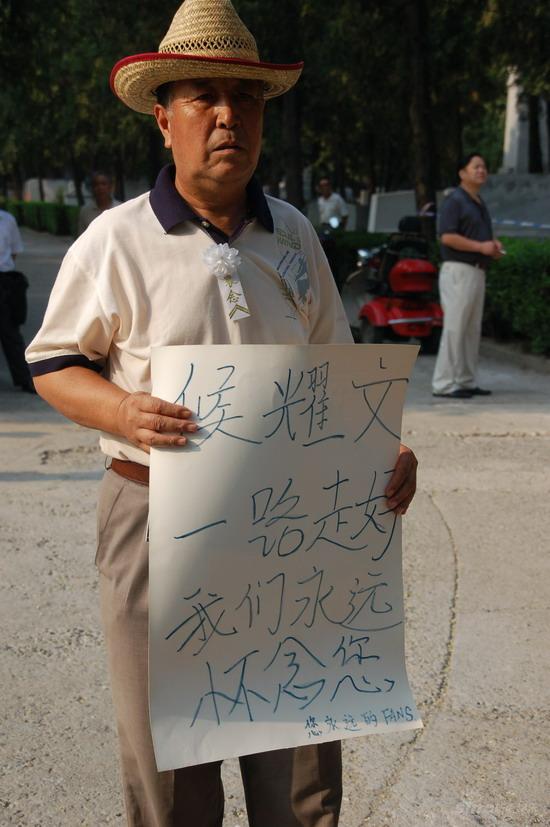 候耀文
一路走好
我们永远
怀念您
您永远的FANS
念